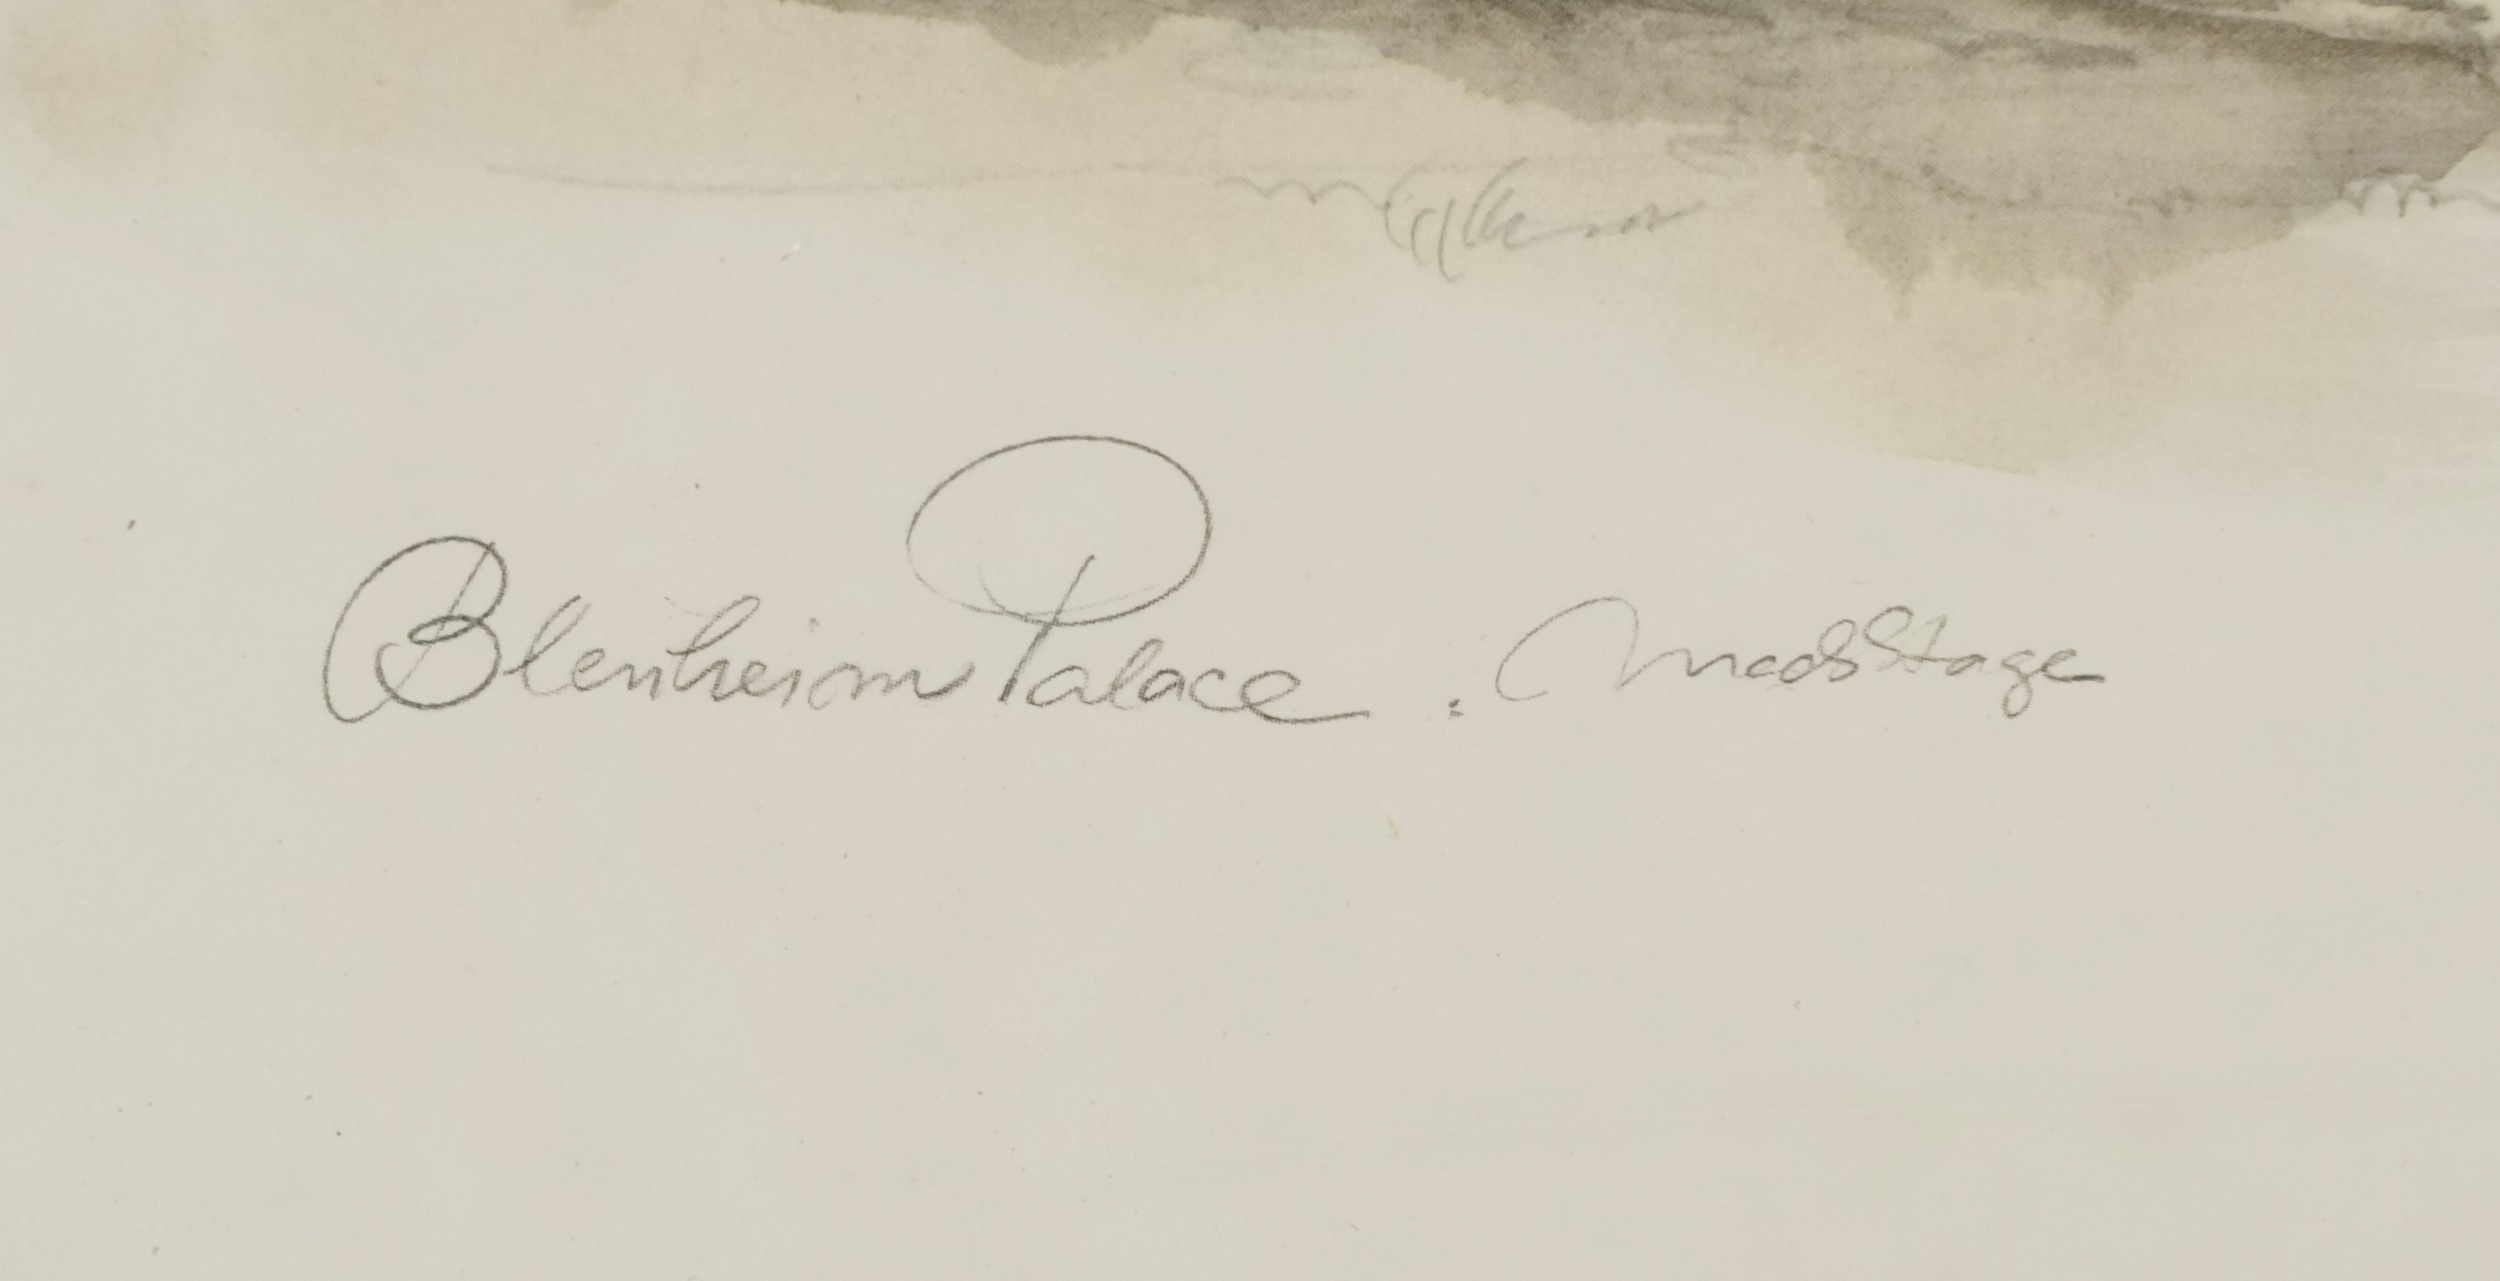 Blenheim Palace . Mads Stage